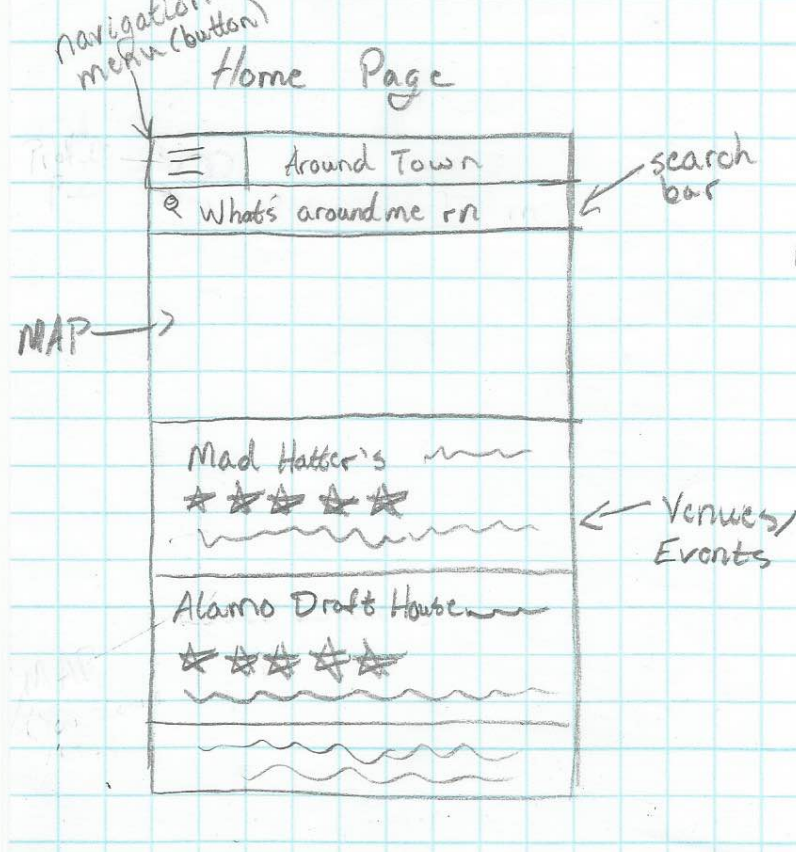 navigation
menu (button)
Home Page
Around Town
search
bar
What's around me rn
MAP
Mad Hatter's
Venues/
Events
Alamo Draft House